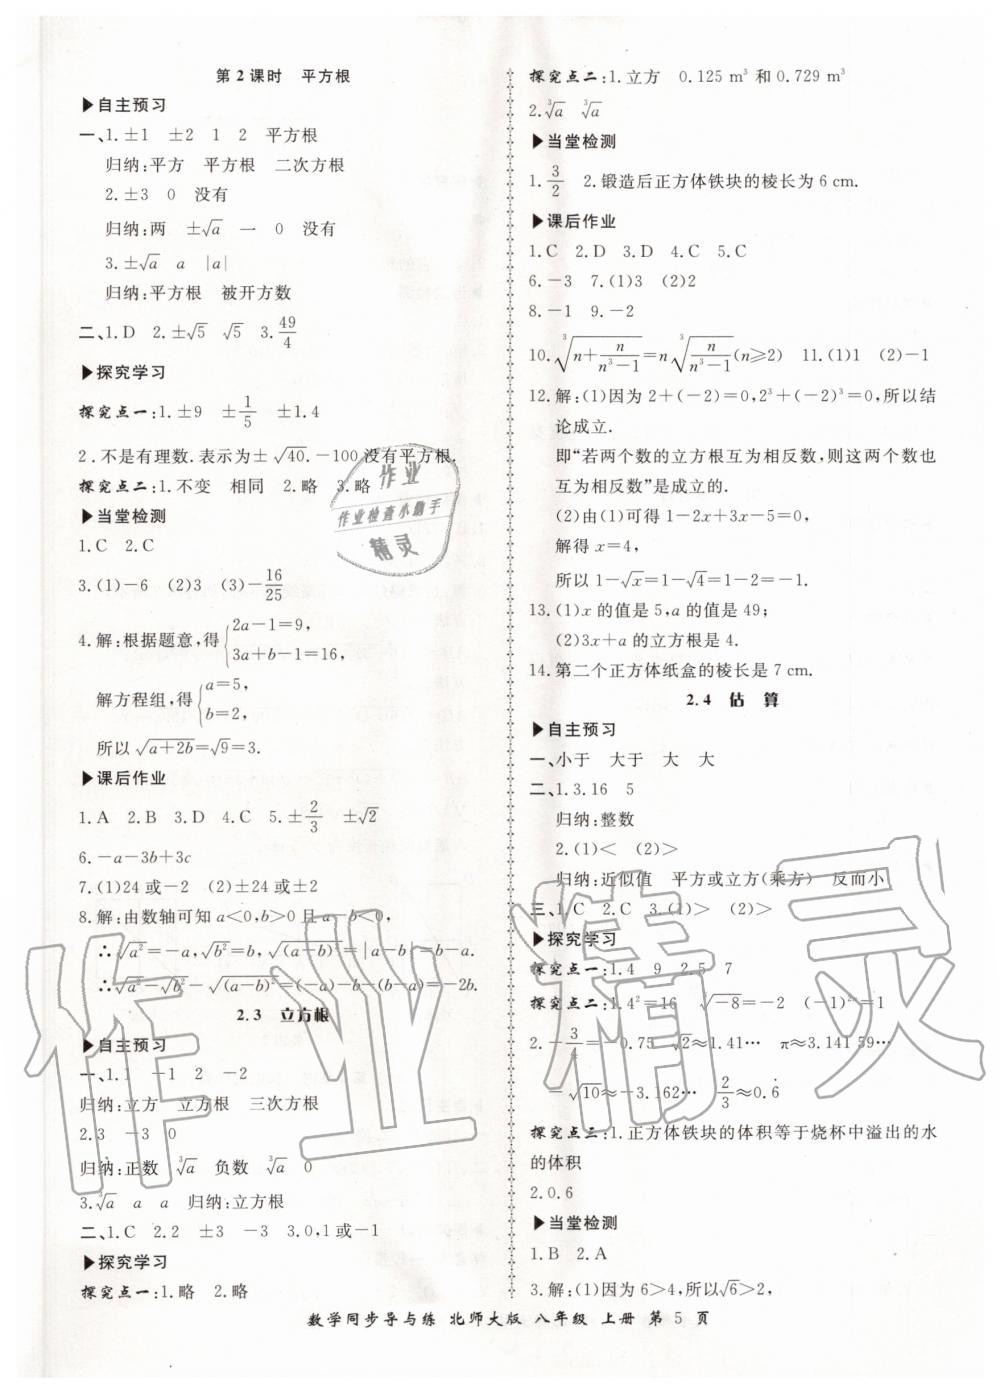 第2课时 平方根
▶自主预习
一、1.±1 ±2 1 2 平方根
归纳:平方 平方根 二次方根
2.±3 0 没有
归纳:两 ±√a 一 0 没有
3.±√a a |a|
归纳:平方根 被开方数
二、1.D 2.±√5 √5 3.49/4
▶探究学习
探究点一:1.±9 ±1/5 ±1.4
2.不是有理数.表示为±√40.-100没有平方根.
探究点二:1.不变 相同 2.略 3.略
▶当堂检测
1.C 2.C
3.(1)-6 (2)7 (3)-16/25
4.解:根据题意,得{2a-1=9,
3a+b-1=16,
解方程组,得{a=5,
b=2,
所以√(a+2b)=√9=3.
▶课后作业
1.A 2.B 3.D 4.C 5.±2/3 ±√2
6.-a-3b+3c
7.(1)24或-2 (2)±24或±2
8.解:由数轴可知a<0,b>0且a-b<0,
∴√(a²)=-a,√(b²)=b,√((a-b)²)=|a-b|=b-a.
∴√(a²)-√(b²)-√((a-b)²)=(-a)-b-(b-a)=-2b.
2.3 立方根
▶自主预习
一、1.1 -1 2 -2
归纳:立方 立方根 三次方根
2.3 -3 0
归纳:正数 ³√a 负数 ³√a 0
3.³√a a a 归纳:立方根
二、1.C 2.2 ±3 -3 3.0,1或-1
▶探究学习
探究点一:1.略 2.略
探究点二:1.立方 0.125 m³和0.729 m³
2.³√a ³√a
▶当堂检测
1.3/2 2.锻造后正方体铁块的棱长为6 cm.
▶课后作业
1.C 2.D 3.D 4.C 5.C
6.-3 7.(1)3 (2)2
8.-1 9.-2
10.³√(n+n/(n³-1))=n³√(n/(n³-1))(n≥2) 11.(1)1 (2)-1
12.解:(1)因为2+(-2)=0,2³+(-2)³=0,所以结
论成立.
即“若两个数的立方根互为相反数,则这两个数也
互为相反数”是成立的.
(2)由(1)可得1-2x+3x-5=0,
解得x=4,
所以1-√x=1-√4=1-2=-1.
13.(1)x的值是5,a的值是49;
(2)3x+a的立方根是4.
14.第二个正方体纸盒的棱长是7 cm.
2.4 估 算
▶自主预习
一、小于 大于 大 大
二、1.3.16 5
归纳:整数
2.(1)< (2)>
归纳:近似值 平方或立方(乘方) 反而小
三、1.C 2.C 3.(1)> (2)>
▶探究学习
探究点一:1.4 9 2.5 7
探究点二:1.4²=16 ³√-8=-2 (-1)²=1
2.-3/4=-0.75 √2≈1.41… π≈3.141 59…
-√10≈-3.162… 2/3≈0.6̇
探究点三:1.正方体铁块的体积等于烧杯中溢出的水
的体积
2.0.6
▶当堂检测
1.B 2.A
3.解:(1)因为6>4,所以√6>2,
数学同步导与练 北师大版 八年级 上册 第5页
作业
作业检查小助手
精灵
作业精灵